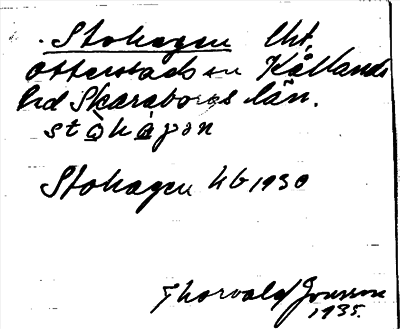 Stohagen lht,
Otterstads sn Kållands
hrd Skaraborgs län.
Stohagen hb 1930
Thorvald Jonsson
1935.